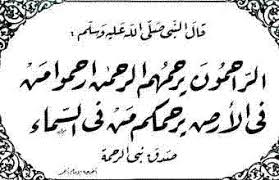 قال النبي صلى الله عليه وسلم :
الراحمون يرحمهم الرحمن ارحموا من
في الأرض يرحمكم من في السماء
صدق نبي الرحمة